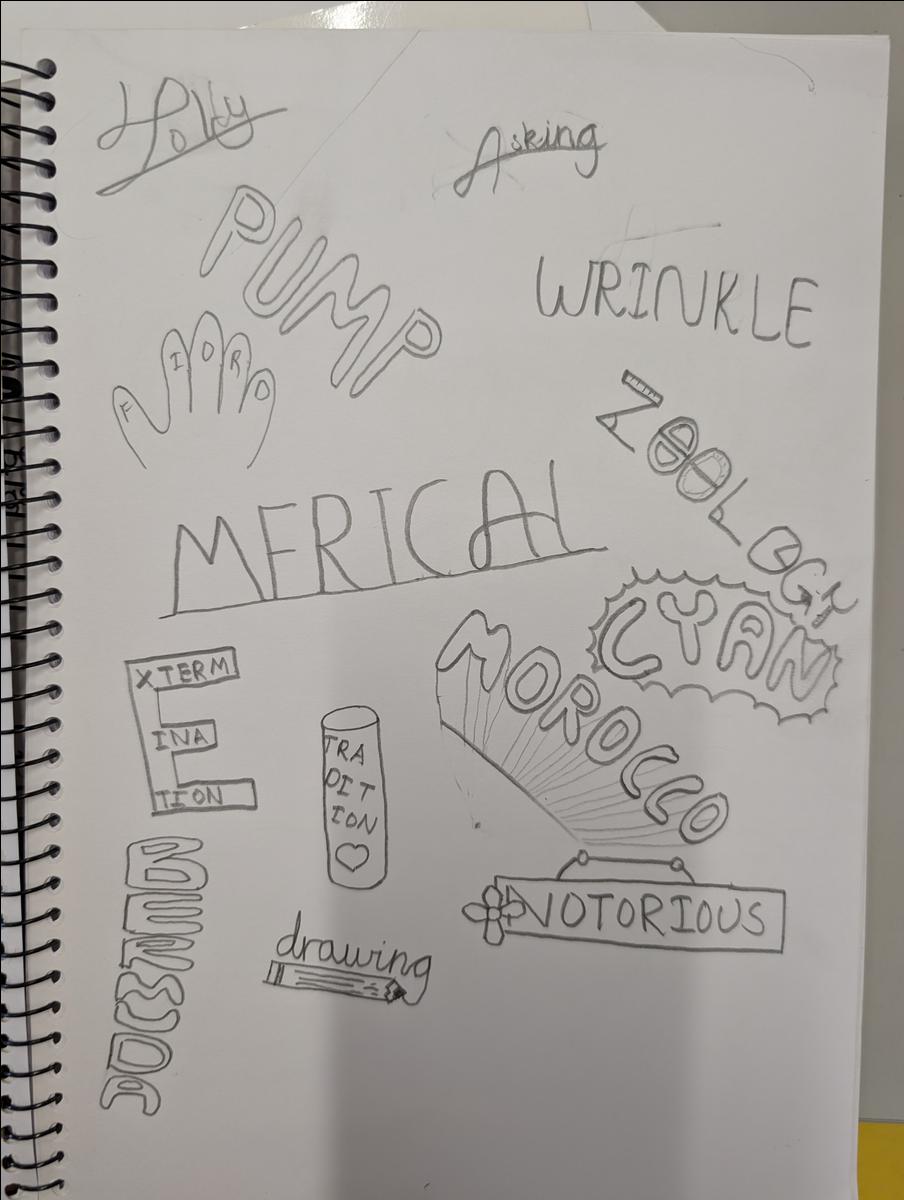 Asking
PUMP
WRINKLE
FIORD
ZOOLOGY
MERICAL
CYAN
MOROCCO
EXTERM
INA
TION
TRA
DIT
ION
NOTORIOUS
drawing